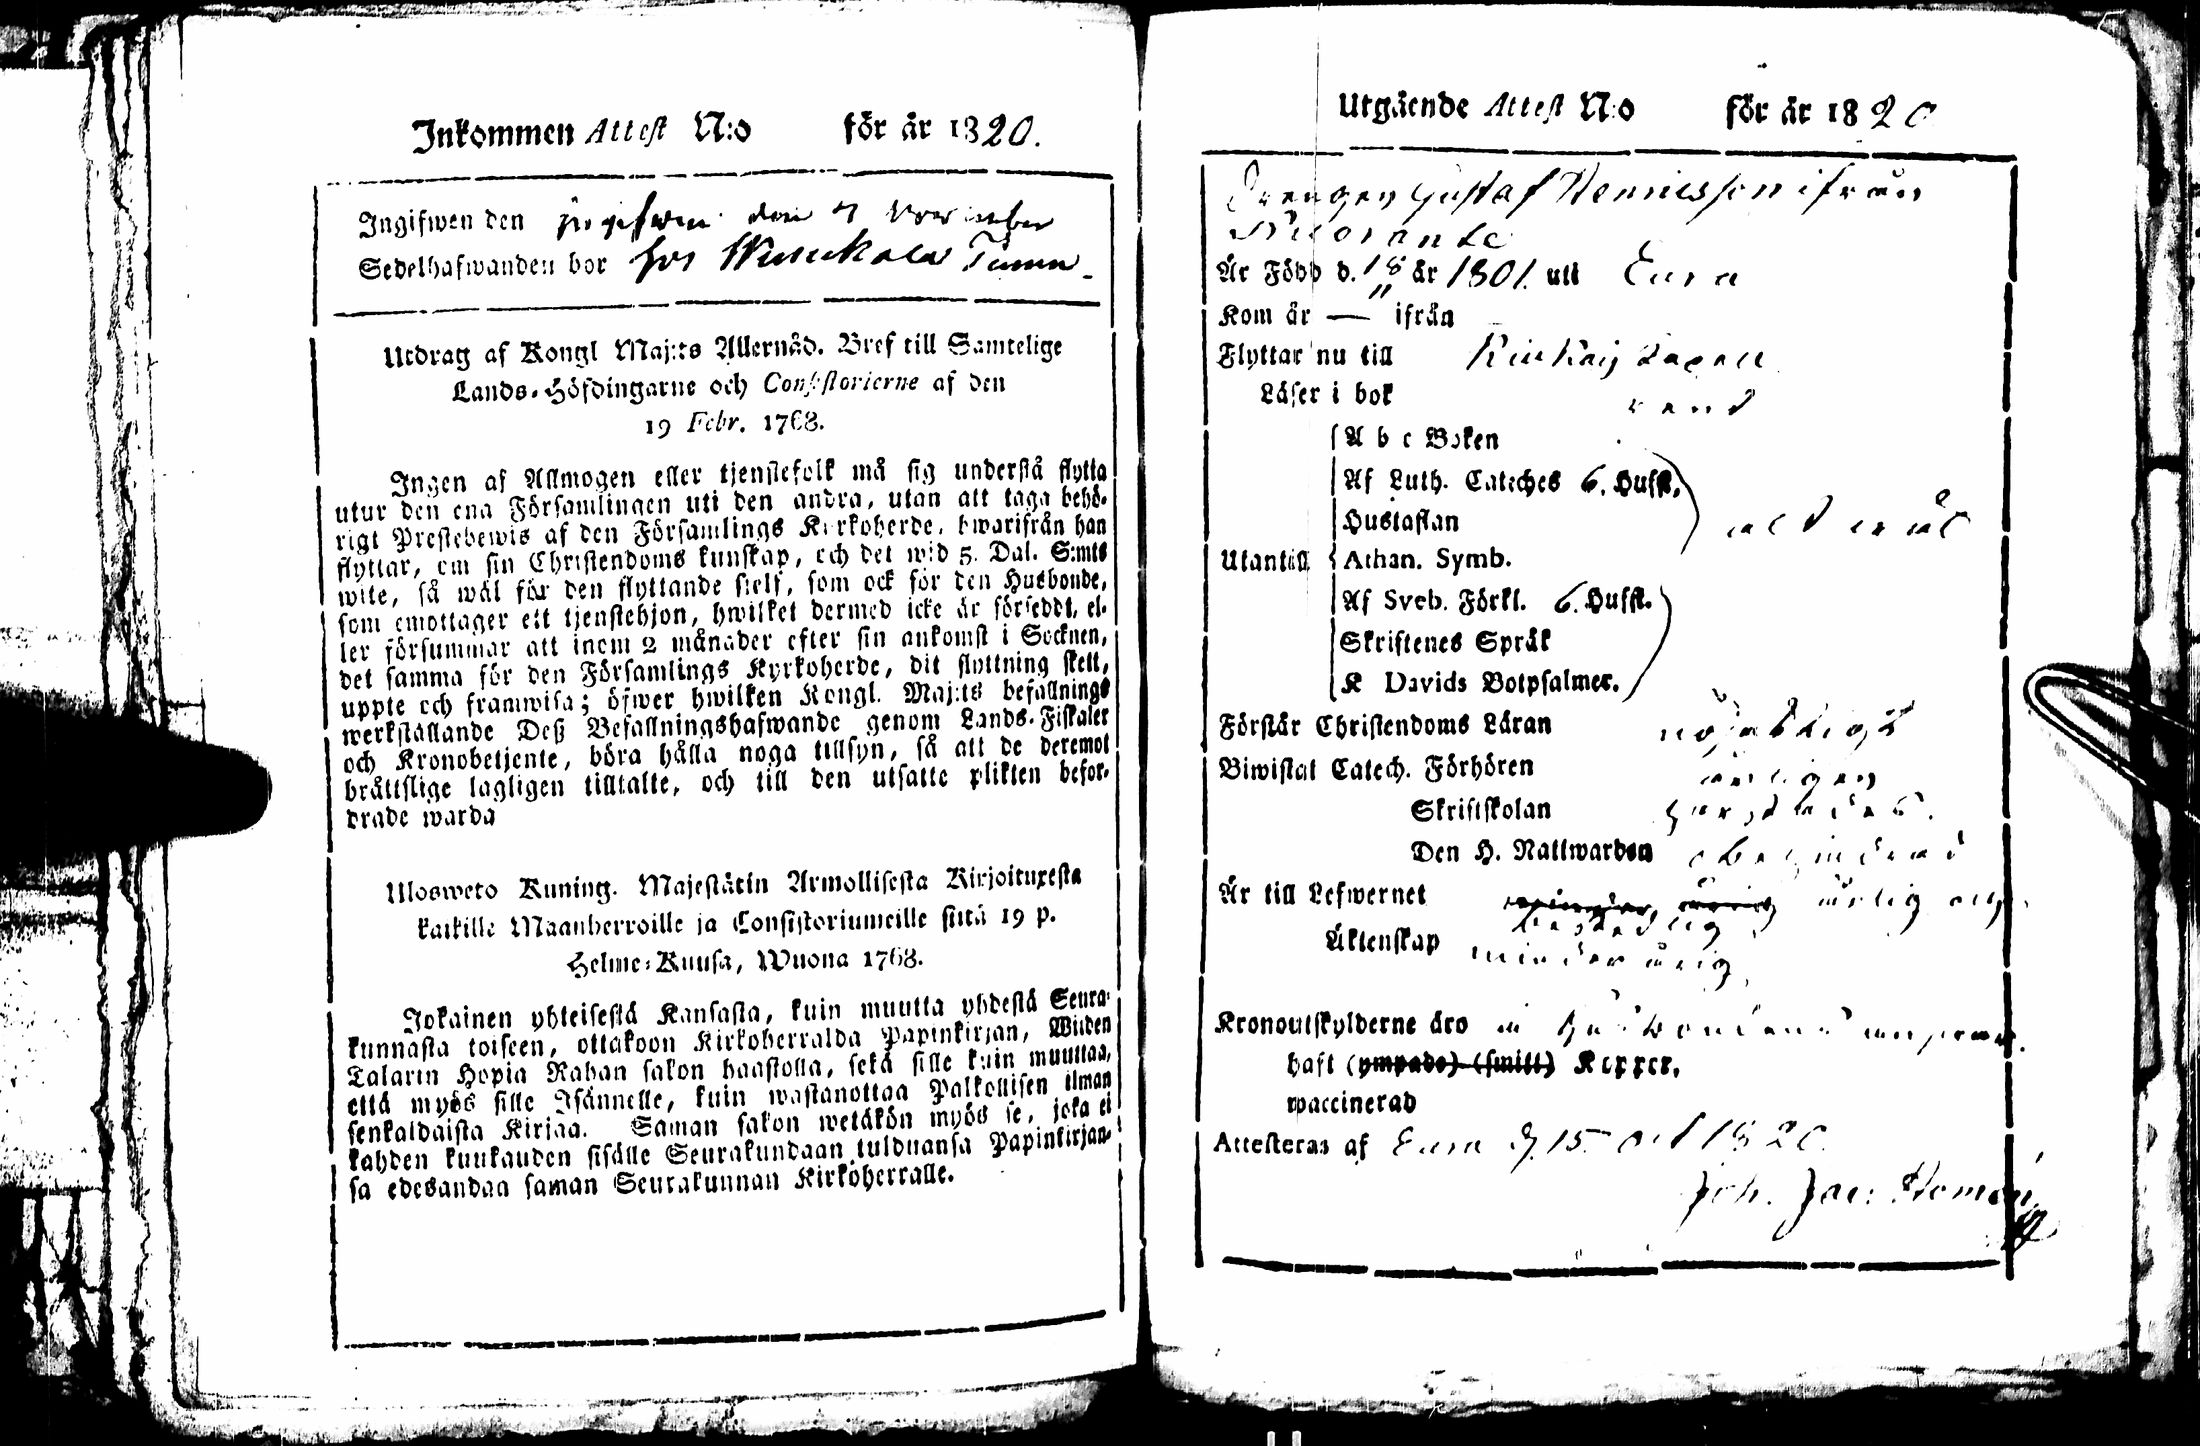 Inkommen Attest N:o för år 1820.
Ingifwen den ingifwen den 7 November
Sedelhafwanden bor hos
Utdrag af Kongl Maj:ts Allernåd. Bref till Samtelige
Lands-Höfdingarne och Consistorierne af den
19 Febr. 1768.
Ingen af Allmogen eller tjenstefolk må sig understå flytta
utur den ena Församlingen uti den andra, utan att taga behö-
rigt Prestebewis af den Församlings Kyrkoherde, hwarifrån han
flyttar, om sin Christendoms kunskap, och det wid 5. Dal. S:mts
wite, så wäl för den flyttande sielf, som ock för den Husbonde,
som emottager ett tjenstehjon, hwilket dermed icke är försedt, el-
ler försummar att inom 2 månader efter sin ankomst i Socknen,
det samma för den Församlings Kyrkoherde, dit flyttning skett,
uppte och framwisa; öfwer hwilken Kongl. Maj:ts befallnings
werkställande Deß Befallningshafwande genom Lands-Fiskaler
och Kronobetjente, böra hålla noga tillsyn, så att de deremot
bråttslige lagligen tilltalte, och till den utsatte plikten befor-
drade warda
Ulosweto Kuning. Majestätin Armollisesta Kirjoituxesta
kaikille Maanherroille ja Consistoriumeille siitä 19 p.
Helme-Kuusa, Wuona 1768.
Jokainen yhteisestä Kansasta, kuin muutta yhdestä Seura-
kunnasta toiseen, ottakoon Kirkoherralda Papinkirjan, Wiiden
Talarin Hopia Rahan sakon haastolla, sekä sille kuin muuttaa,
että myös sille Isännelle, kuin wastanottaa Palkollisen ilman
senkaldaista Kirjaa. Saman sakon wetäkön myös se, joka ei
kahden kuukauden sisälle Seurakundaan tulduansa Papinkirjan-
sa edesandaa saman Seurakunnan Kirkoherralle.
Utgående Attest N:o för år 1820
Drengen Gustaf ifrån
Är Född d. 18 år 1801. uti Eura
Kom år — ifrån
Flyttar nu till Kiukais Capell
Läser i bok rent
A b c Boken
Af Luth. Cateches 6. Hufst.
Hustaflan alt wäl
Utantill Athan. Symb.
Af Sveb. Förkl. 6. Hufst.
Skriftenes Språk
K Davids Botpsalmer.
Förstår Christendoms Läran nöjaktigt
Biwistat Catech. Förhören årligen
Skriftskolan
Den H. Nattwarden obehindrad
Är till Lefwernet ärlig och
beskedlig
Äktenskap minderårig
Kronoutskylderne äro å Husbondens answar.
haft (ympade) (smitt) Koppor.
waccinerad
Attesteras af Eura d. 15 Oct 1820.
Joh. Jac: